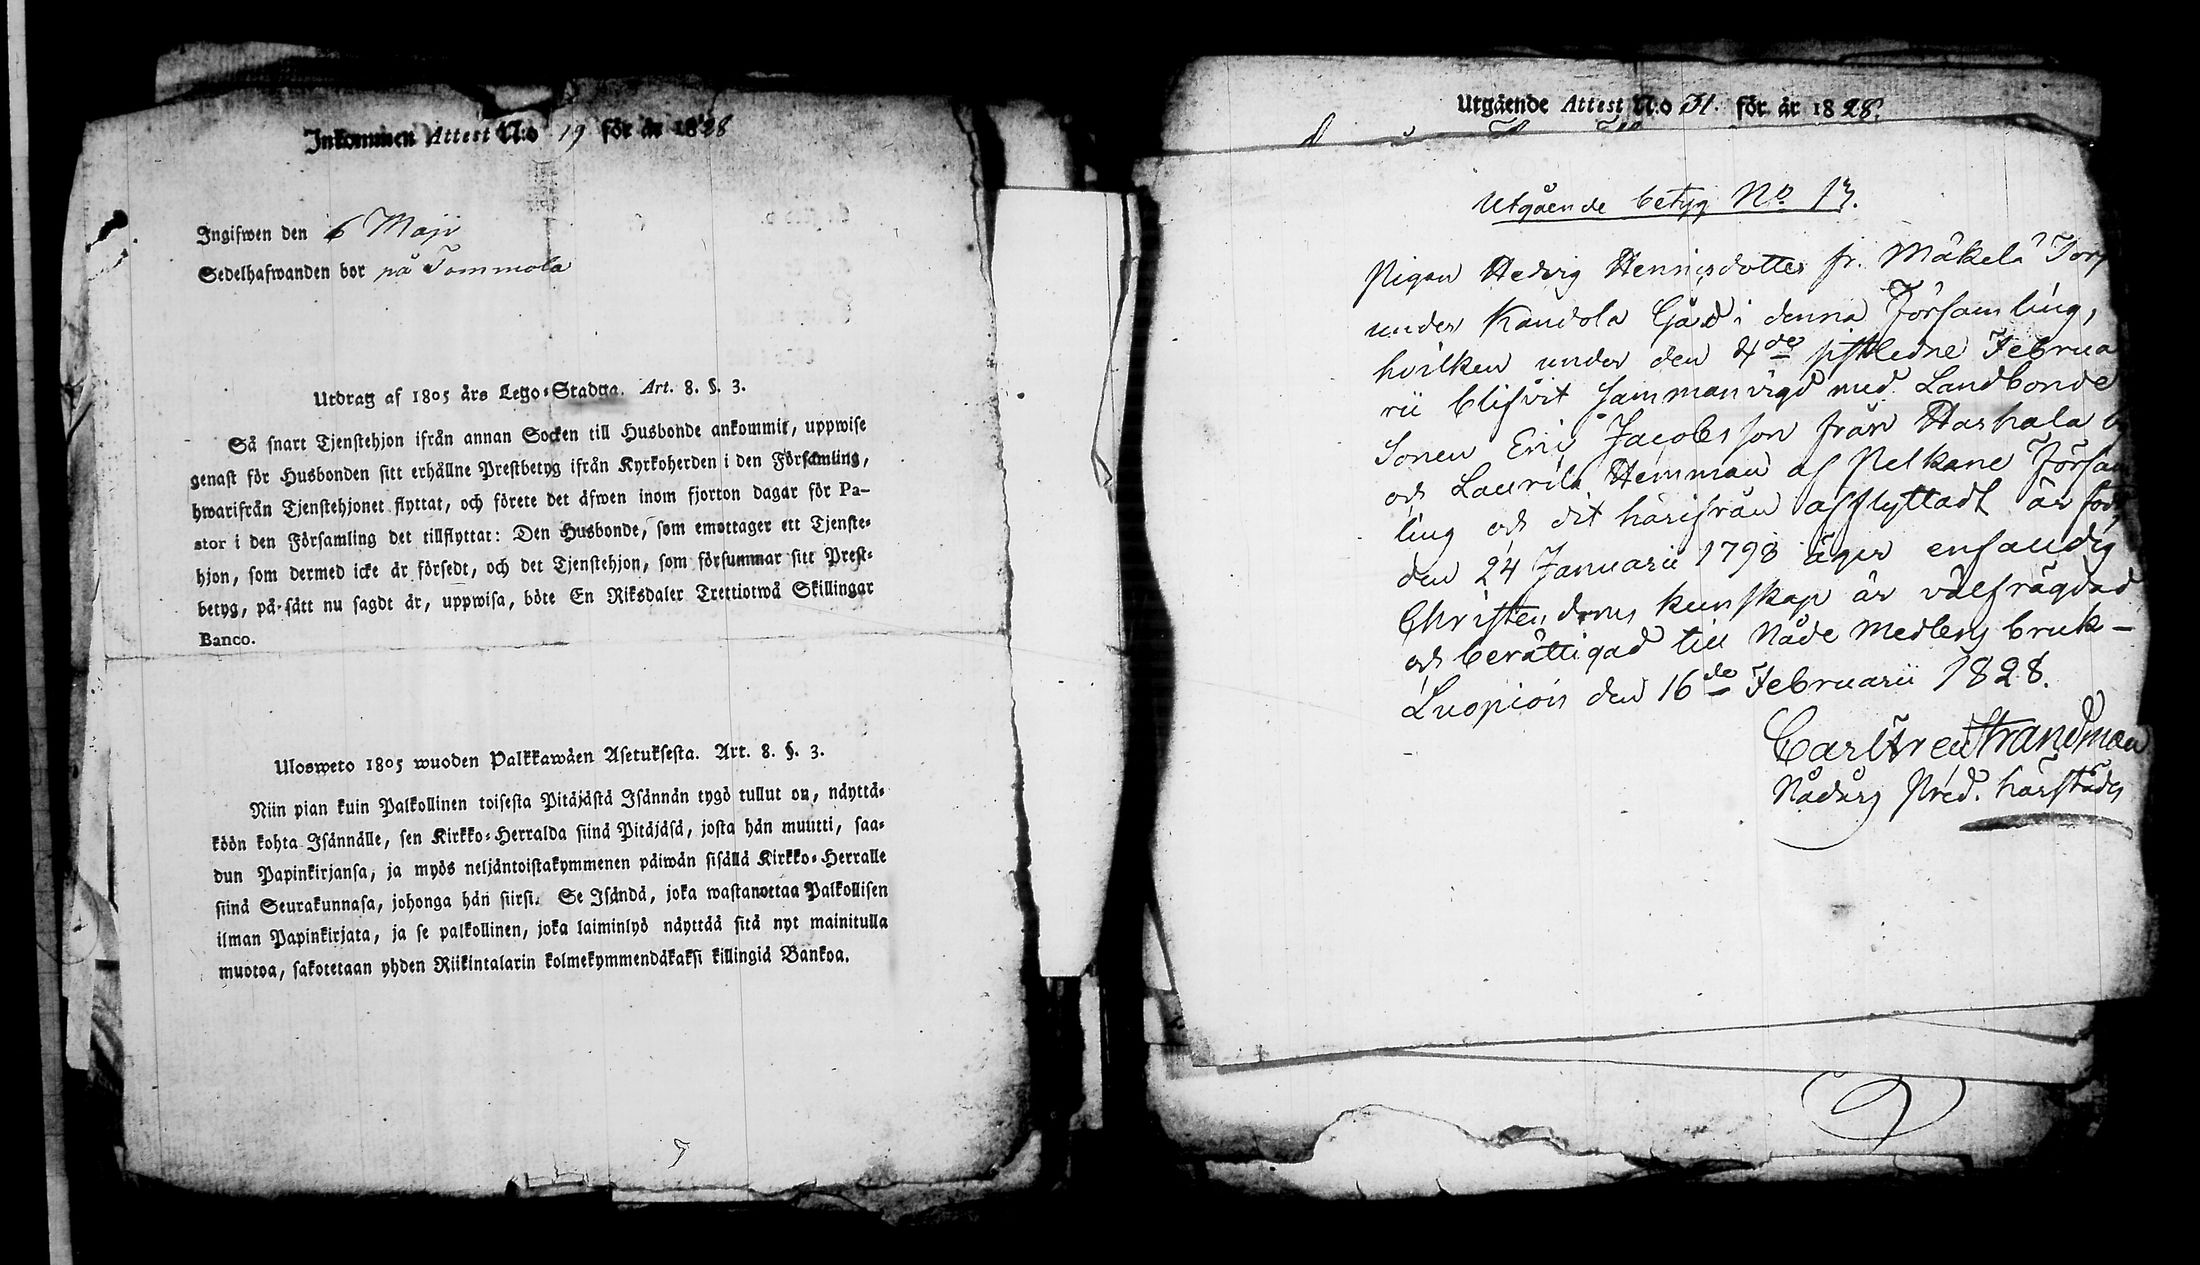 Inkommen Attest N:o 19 för år 1828
Ingifwen den 6 Maji
Sedelhafwanden bor på Tommola
Utdrag af 1805 års Lego-Stadga. Art. 8. §. 3.
Så snart Tjenstehjon ifrån annan Socken till Husbonde ankommit, uppwise
genast för Husbonden sitt erhållne Prestbetyg ifrån Kyrkoherden i den Församling,
hwarifrån Tjenstehjonet flyttat, och förete det äfwen inom fjorton dagar för Pa-
stor i den Församling det tillflyttat: Den Husbonde, som emottager ett Tjenste-
hjon, som dermed icke är försedt, och det Tjenstehjon, som försummar sitt Prest-
betyg, på sätt nu sagdt är, uppwisa, böte En Riksdaler Trettiotwå Skillingar
Banco.
Ulosweto 1805 wuoden Palkkawäen Asetuksesta. Art. 8. §. 3.
Niin pian kuin Palkollinen toisesta Pitäjästä Isännän tygö tullut on, näyttä-
köön kohta Isännälle, sen Kirkko-Herralda siinä Pitäjäsä, josta hän muutti, saa-
dun Papinkirjansa, ja myös neljäntoistakymmenen päiwän sisällä Kirkko-Herralle
siinä Seurakunnasa, johonga hän siirsi. Se Isändä, joka wastanottaa Palkollisen
ilman Papinkirjata, ja se palkollinen, joka laiminlyö näyttää sitä nyt mainitulla
muotoa, sakotetaan yhden Riikintalarin kolmekymmendäkaksi killingiä Bankoa.
Utgående Attest N:o 31. för år 1828.
Utgående betyg No 13.
Pigan Hedvig Henricsdotter fr. Mäkelä Torp
under Kandola Gård i denna Församling,
hvilken under den 4de sistledne Februa
rii blifvit sammanvigd med Landbonde
Sonen Eric Jacobsson från Harhala
och Laurila Hemman af Pelkane Försam
ling och dit härifrån afflyttadt är född
den 24 Januarii 1798 äger enfaldig
Christendoms kunskap är välfrägdad
och berättigad till Nåde Medlens bruk –
Luopiois den 16de Februarii 1828.
Carl Strandman
Nådårs Pred. härstädes